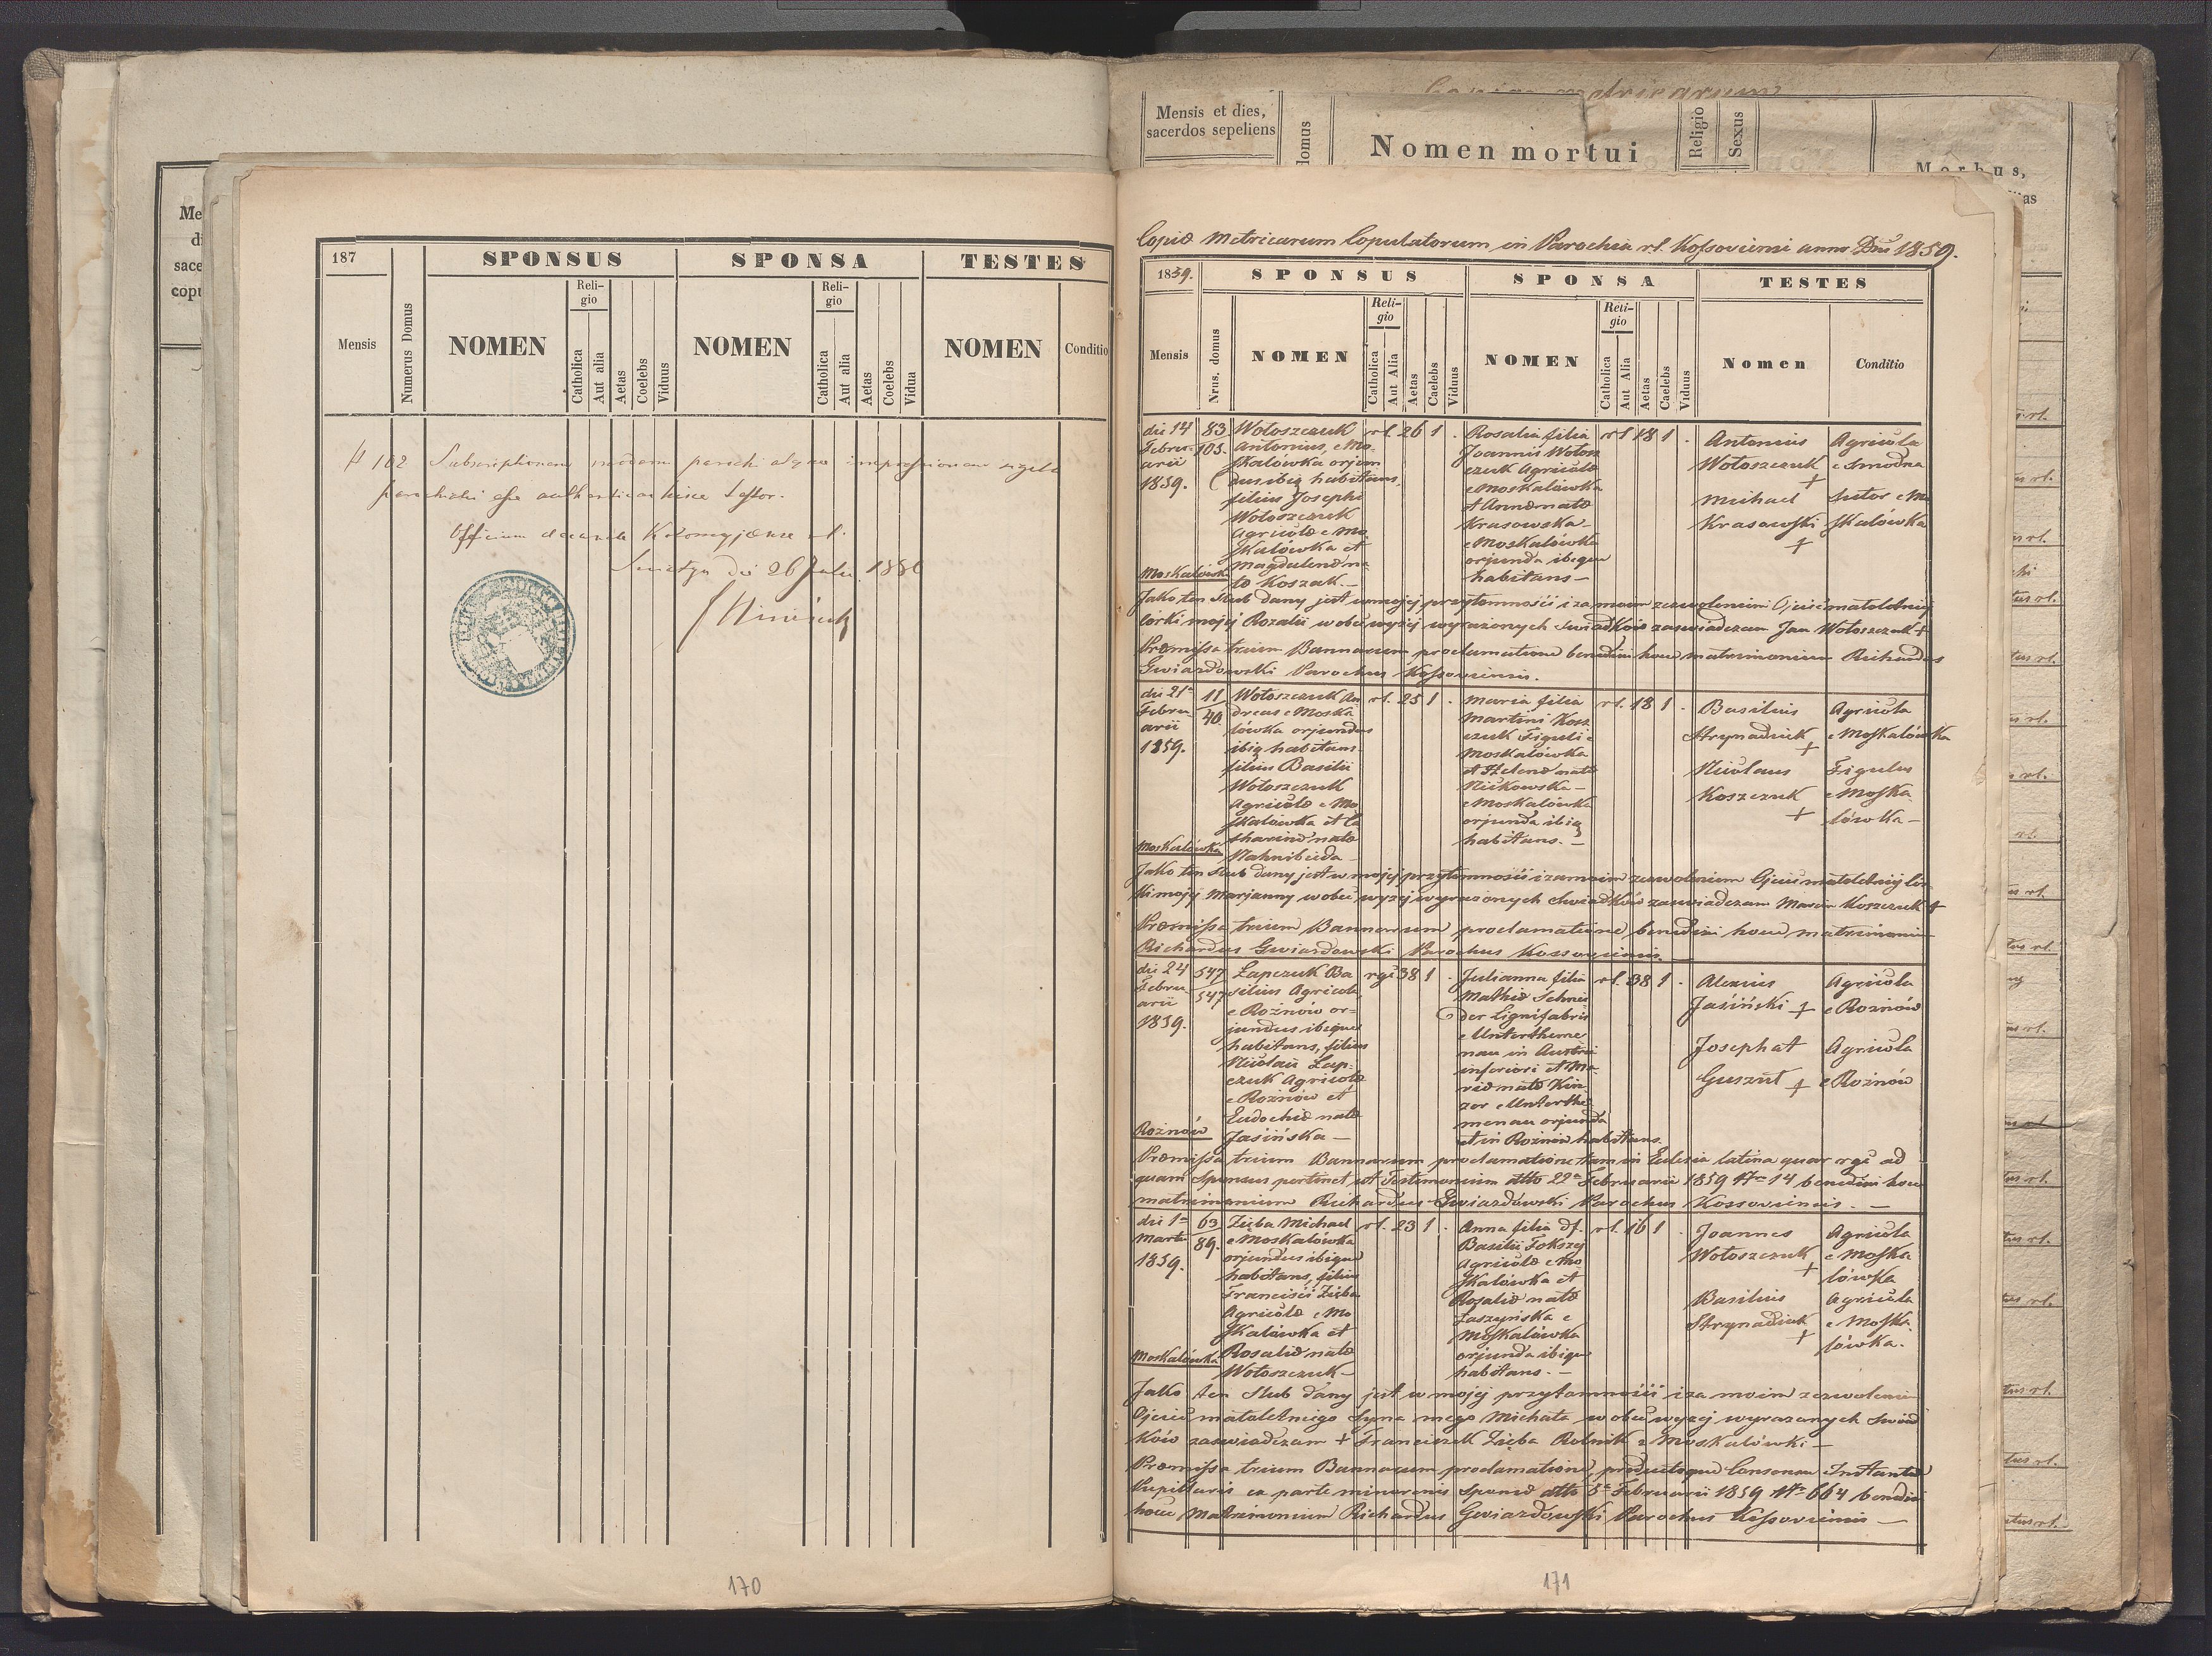 187
Mensis
Numerus Domus
SPONSUS
NOMEN
Reli-
gio
Catholica
Aut alia
Aetas
Coelebs
Viduus
SPONSA
NOMEN
Reli-
gio
Catholica
Aut alia
Aetas
Coelebs
Vidua
TESTES
NOMEN
Conditio
102 Subscriptionem parochi impressionem sigilli
parochialis esse authenticam hisce testor.
Officium decanale Kolomyjense rl.
Sniatyn die 26 Julii 188
170
Mensis et dies,
sacerdos sepeliens
domus
Nomen mortui
Religio
Sexus
Morbus,
Copia Metricarum Copulatorum in Parochia rl. Kossoviensi anno Dni 1859.
1859.
SPONSUS
SPONSA
TESTES
Mensis
Nrus. domus
NOMEN
Reli-
gio
Catholica
Aut Alia
Aetas
Caelebs
Viduus
NOMEN
Reli-
gio
Catholica
Aut Alia
Aetas
Caelebs
Viduus
Nomen
Conditio
die 14
Febru-
arii
1859.
83
103.
Wołoszczuk
Antonius, e Mo-
skalówka orjun
dus ibiq habitans,
filius Josephi
Wołoszczuk
Agricolæ e Mo
skalówka et
Magdalenæ na
tæ Koszak.—
rl. 26 1 .
Rosalia filia
Joannis Wołosz
czuk Agricolæ
e Moskalówka
et Annæ natæ
Krasowska
e Moskalówka
orjunda ibique
habitans—
rl 18 1 .
Antonius
Wołoszczuk
+
Michael
Krasowski
+
Agricola
e Smodna
Sutor e Mo
skalówka
Moskalówka
Jako ten ślub dany jest w mojej przytomności i za moim zezwoleniem Ojciec małoletniej
córki mojej Rozalii w obec wyżej wyrażonych świadków zaświadczam Jan Wołoszczuk +
Præmissa trium Bannorum proclamatione benedixi hocce matrimonium Richardus
Gwiazdowski Parochus Kossoviensis.
die 21a
Febru
arii
1859.
11
40
Wołoszczuk An
dreas e Moska
lówka orjundus
ibiq habitans
filius Basilii
Wołoszczuk
Agricolæ e Mo
skalówka et Ca
tharinæ natæ
Nahnibieda—
rl. 25 1 .
Maria filia
Martini Kosz
czuk Figuli e
Moskalówka
et Helenæ natæ
e Moskalówka
orjunda ibiq
habitans.—
rl. 18 1 .
Basilius
Strynadiuk
+
Nicolaus
Koszczuk
+
Agricola
e Moskalówka
Figulus
e Moska
lówka—
Moskalówka
Jako ten ślub dany jest w mojej przytomności i za moim zezwoleniem Ojciec małoletniej cór
ki mojej Marjanny w obec wyżej wyrażonych świadków zaświadczam Marcin Koszczuk +
Præmissa trium Bannorum proclamatione benedixi hocce matrimonium
Richardus Gwiazdowski Parochus Kossoviensis.—
die 24
Febru
arii
1859.
547
547
Łapczuk Ba
silius Agricola
e Rożnów or-
jundus ibique
habitans, filius
Nicolai Łap-
czuk Agricolæ
e Rożnów et
Eudochiæ natæ
Jasińska—
rgi 38 1 .
Julianna filia
Mathiæ Schnei
der Lignifabris
e Untertheme
nau in Austria
inferiori et Ma-
riæ natæ Kin
zer e Unterthe
menau orjunda
et in Rożnów habitans.
rl. 38 1 .
Alexius
Jasiński +
Josephat
Guszuł +
Agricola
e Rożnów
Agricola
e Rożnów
Rożnów
Præmissa trium Bannorum proclamatione tam in Eclesia latina quam rgi ad
quam Sponsus pertinet, ut Testimonium dtto 22a Februarii 1859 Nro 14 benedixi hocce
matrimonium Richardus Gwiazdowski Parochus Kossoviensis.—
die 1a
Martii
1859.
63
89.
Zięba Michael
e Moskalówka
orjundus ibique
habitans, filius
Francisci Zięba
Agricolæ e Mo
skalówka et
Rosaliæ natæ
Wołoszczuk—
rl. 23 1 .
Anna filia df.
Basilii Tokszej
Agricolæ e Mo
skalówka et
Rosaliæ natæ
e
Moskalówka
orjunda ibique
habitans.—
rl. 16 1 .
Joannes
Wołoszczuk
+
Basilius
Strynadiuk
+
Agricola
e Moska
lówka
Agricola
e Moska
lówka.
Moskalówka
Jako ten ślub dany jest w mojej przytomności i za moim zezwoleniem
Ojciec małoletniego syna mego Michała w obec wyżej wyrażonych świad
ków zaświadczam + Franciszek Zięba Rolnik z Moskalówki—
Præmissa trium Bannorum proclamatione, productoque Consensu Instantiæ
Pupillaris ex parte minorenis sponsæ dtto 5a Februarii 1859 Nro 664 benedixi
hocce Matrimonium Richardus Gwiazdowski Parochus Kossoviensis—
171